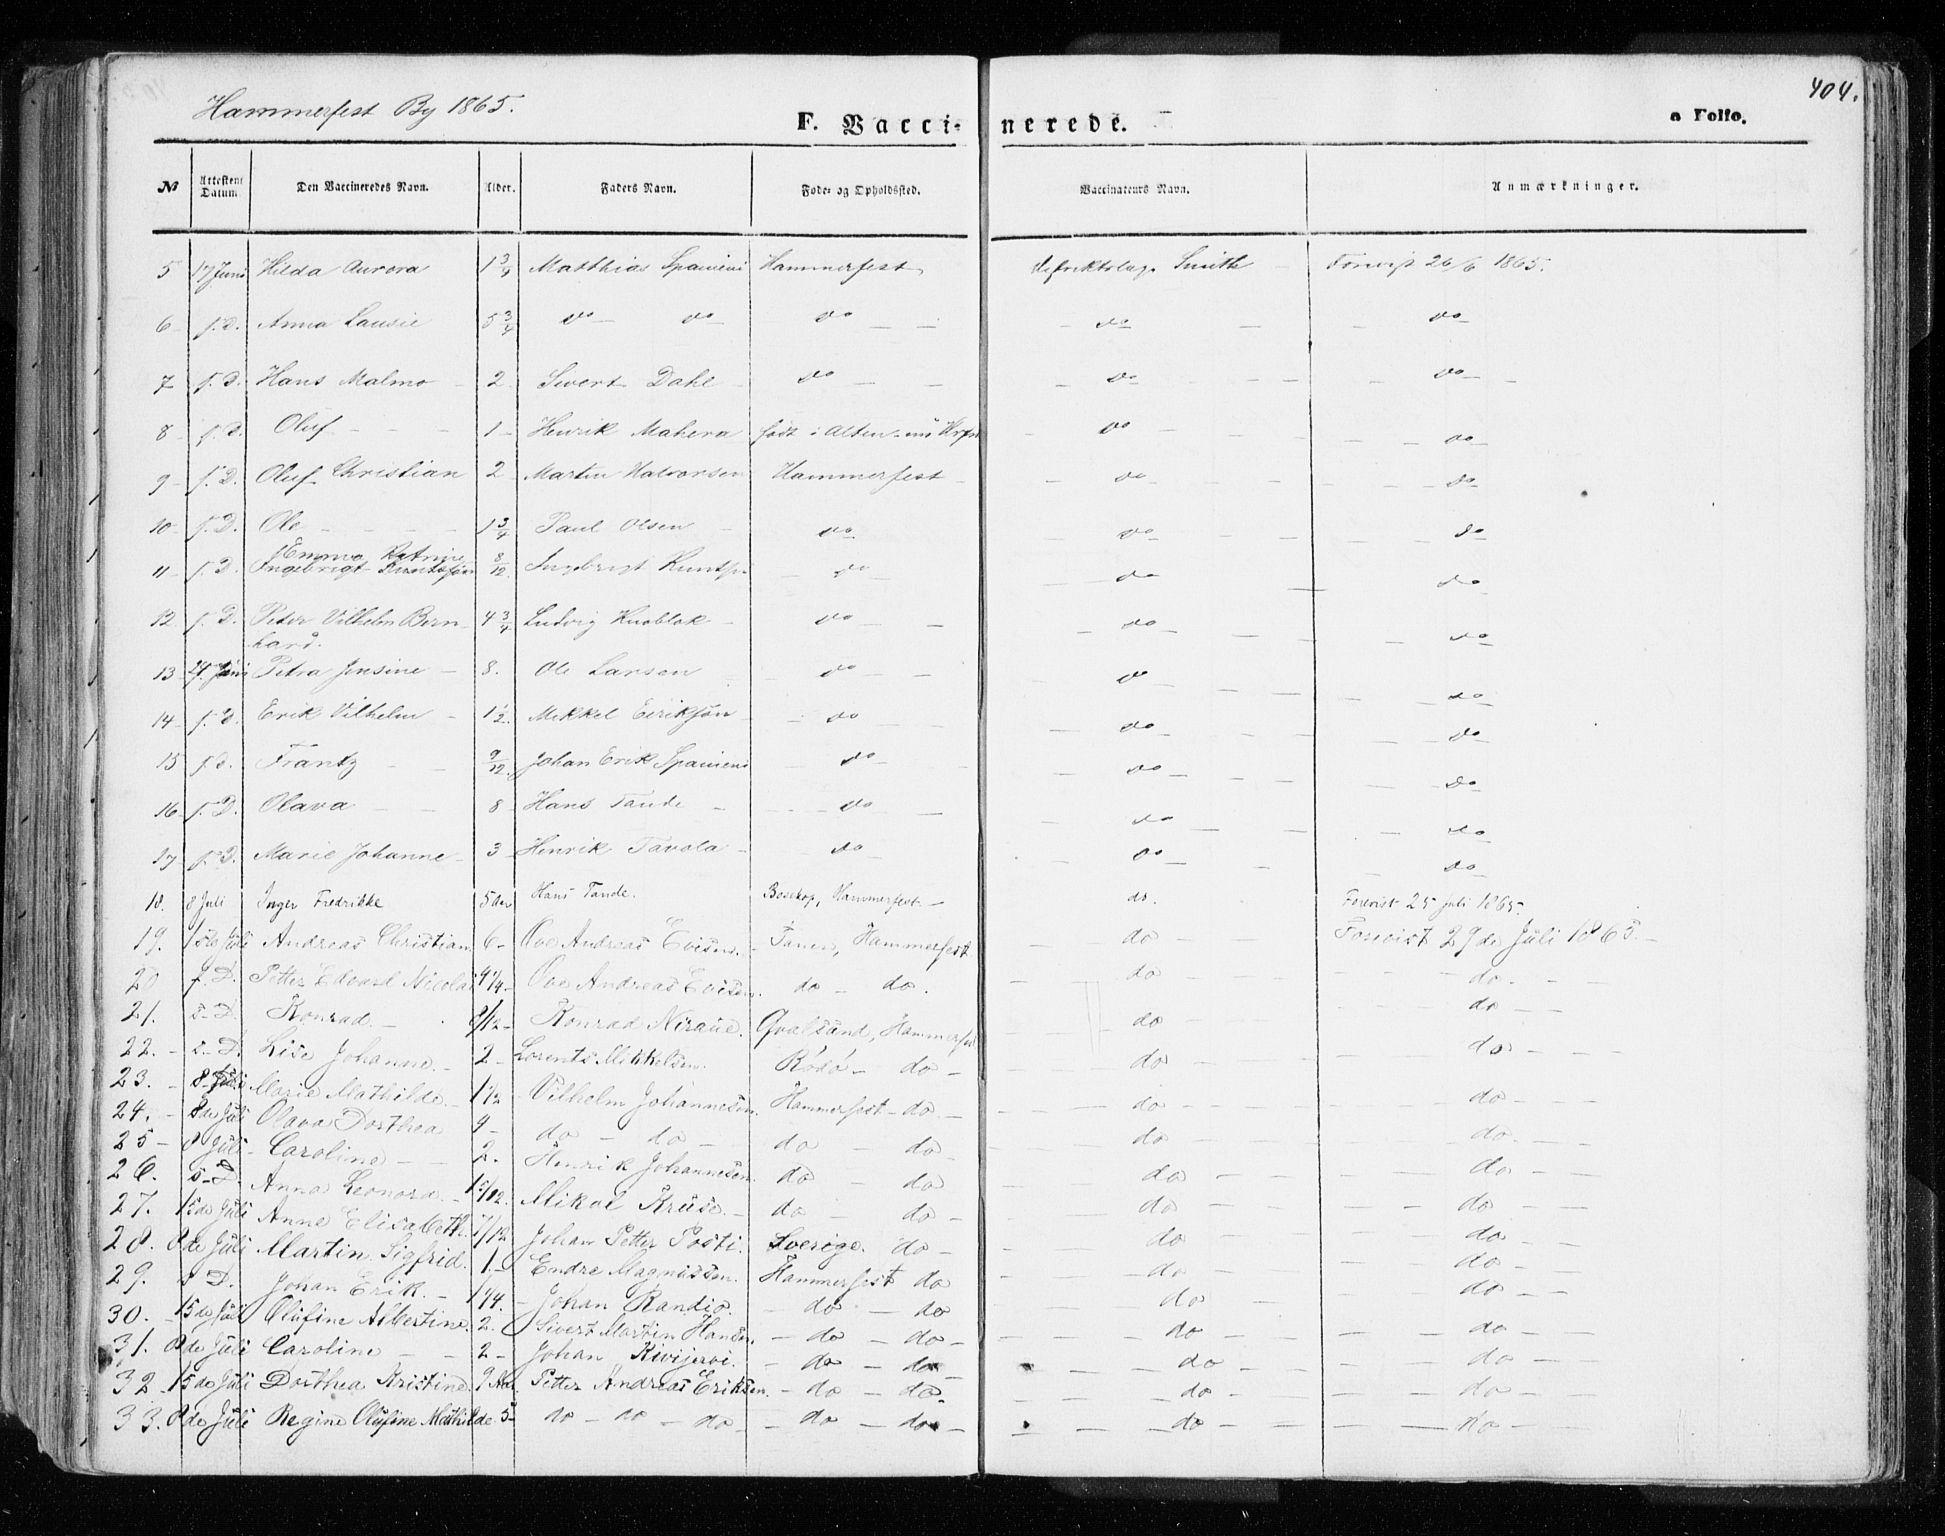 404.
Hammerfest By 1865.
F. Vacci- nerede. a Folio.
No Attestens Datum. Den Vaccineredes Navn. Alder. Faders Navn. Føde- og Opholdssted. Vaccinateurs Navn. Anmærkninger.
5 17 Juni Hilda Aurora 1 3/4 Matthias Hammerfest Smith Forevist 26/6 1865.
6 s.D. Anna 5 3/4 do do do do do
7 s.D. Hans Malmo 2 Sivert Dahl do do do
8 s.D. Oluf 1 Henrik født i Alten do do
9 s.D. Oluf Christian 2 Martin Halvorsen Hammerfest do do
10 s.D. Ole 1 3/4 Paul Olsen do do do
Emma
11 s.D. Ingebrigt 8/12 Ingebrigt do do do
12 s.D. Peter Vilhelm Bern- 4 3/4 Ludvig Knoblok do do do
hard.
13 24 Juni Petra Jensine 8. Ole Larsen do do do
14 s.D. Erik Vilhelm 1 1/2 Mikkel Eriksøn do do do
15 s.D. Frantz 9/12 Johan Erik do do do
16 s.D. Olava 8 Hans Tande do do do
17 s.D. Marie Johanne 3 Henrik Tavola do do do
18. 8 Juli Inger Fredrikke 5 Aar Hans Tande. Bosekop, Hammerfest do. Forevist 25 Juli 1865.
19. 15de Juli Andreas Christian 6 Ove Andreas Evisen. Tanen, Hammerfest do Forevist 29de Juli 1865.
20 s.D. Petter Edvard Nicolai 4 1/4 Ove Andreas Evisen. do do. do do
21. s.D. Konrad 8/12 Konrad Qvalsund, Hammerfest do do
22. s.D. Lise Johanne 2 Lorents Mikkelsen. Rösö do do do
23. 8 Juli Marie Mathilde 1 1/2 Vilhelm Johannesen. Hammerfest do do do
24. 8de Juli Olava Dorthea 4 do do do do do do
25 8 Juli Caroline 2. Henrik Johannesen. do do do do
26. s.D. Anna Leonora 1 5/12. Mikal Kruse do do do do
27. 15de Juli Anne Elisabeth. 7/12 Johan Petter Posti. Sverige. do do do
28. 8de Juli Martin Sigfrid. 1. Endre Magnussen. Hammerfest do do do
29. s.D. Johan Erik. 1 1/4. Johan Randio. do do do do
30. 15de Juli Olufine Albertine. 2. Sivert Martin Hansen. do do do do
31. 8de Juli Caroline 2 Johan Kivijervi. do do do do
32. 15de Juli Dorthea Kristine. 9 Aar Petter Andreas Eriksen. do do do do
33. 8de Juli Regine Olufine Mathilde 5 do do do do do do do